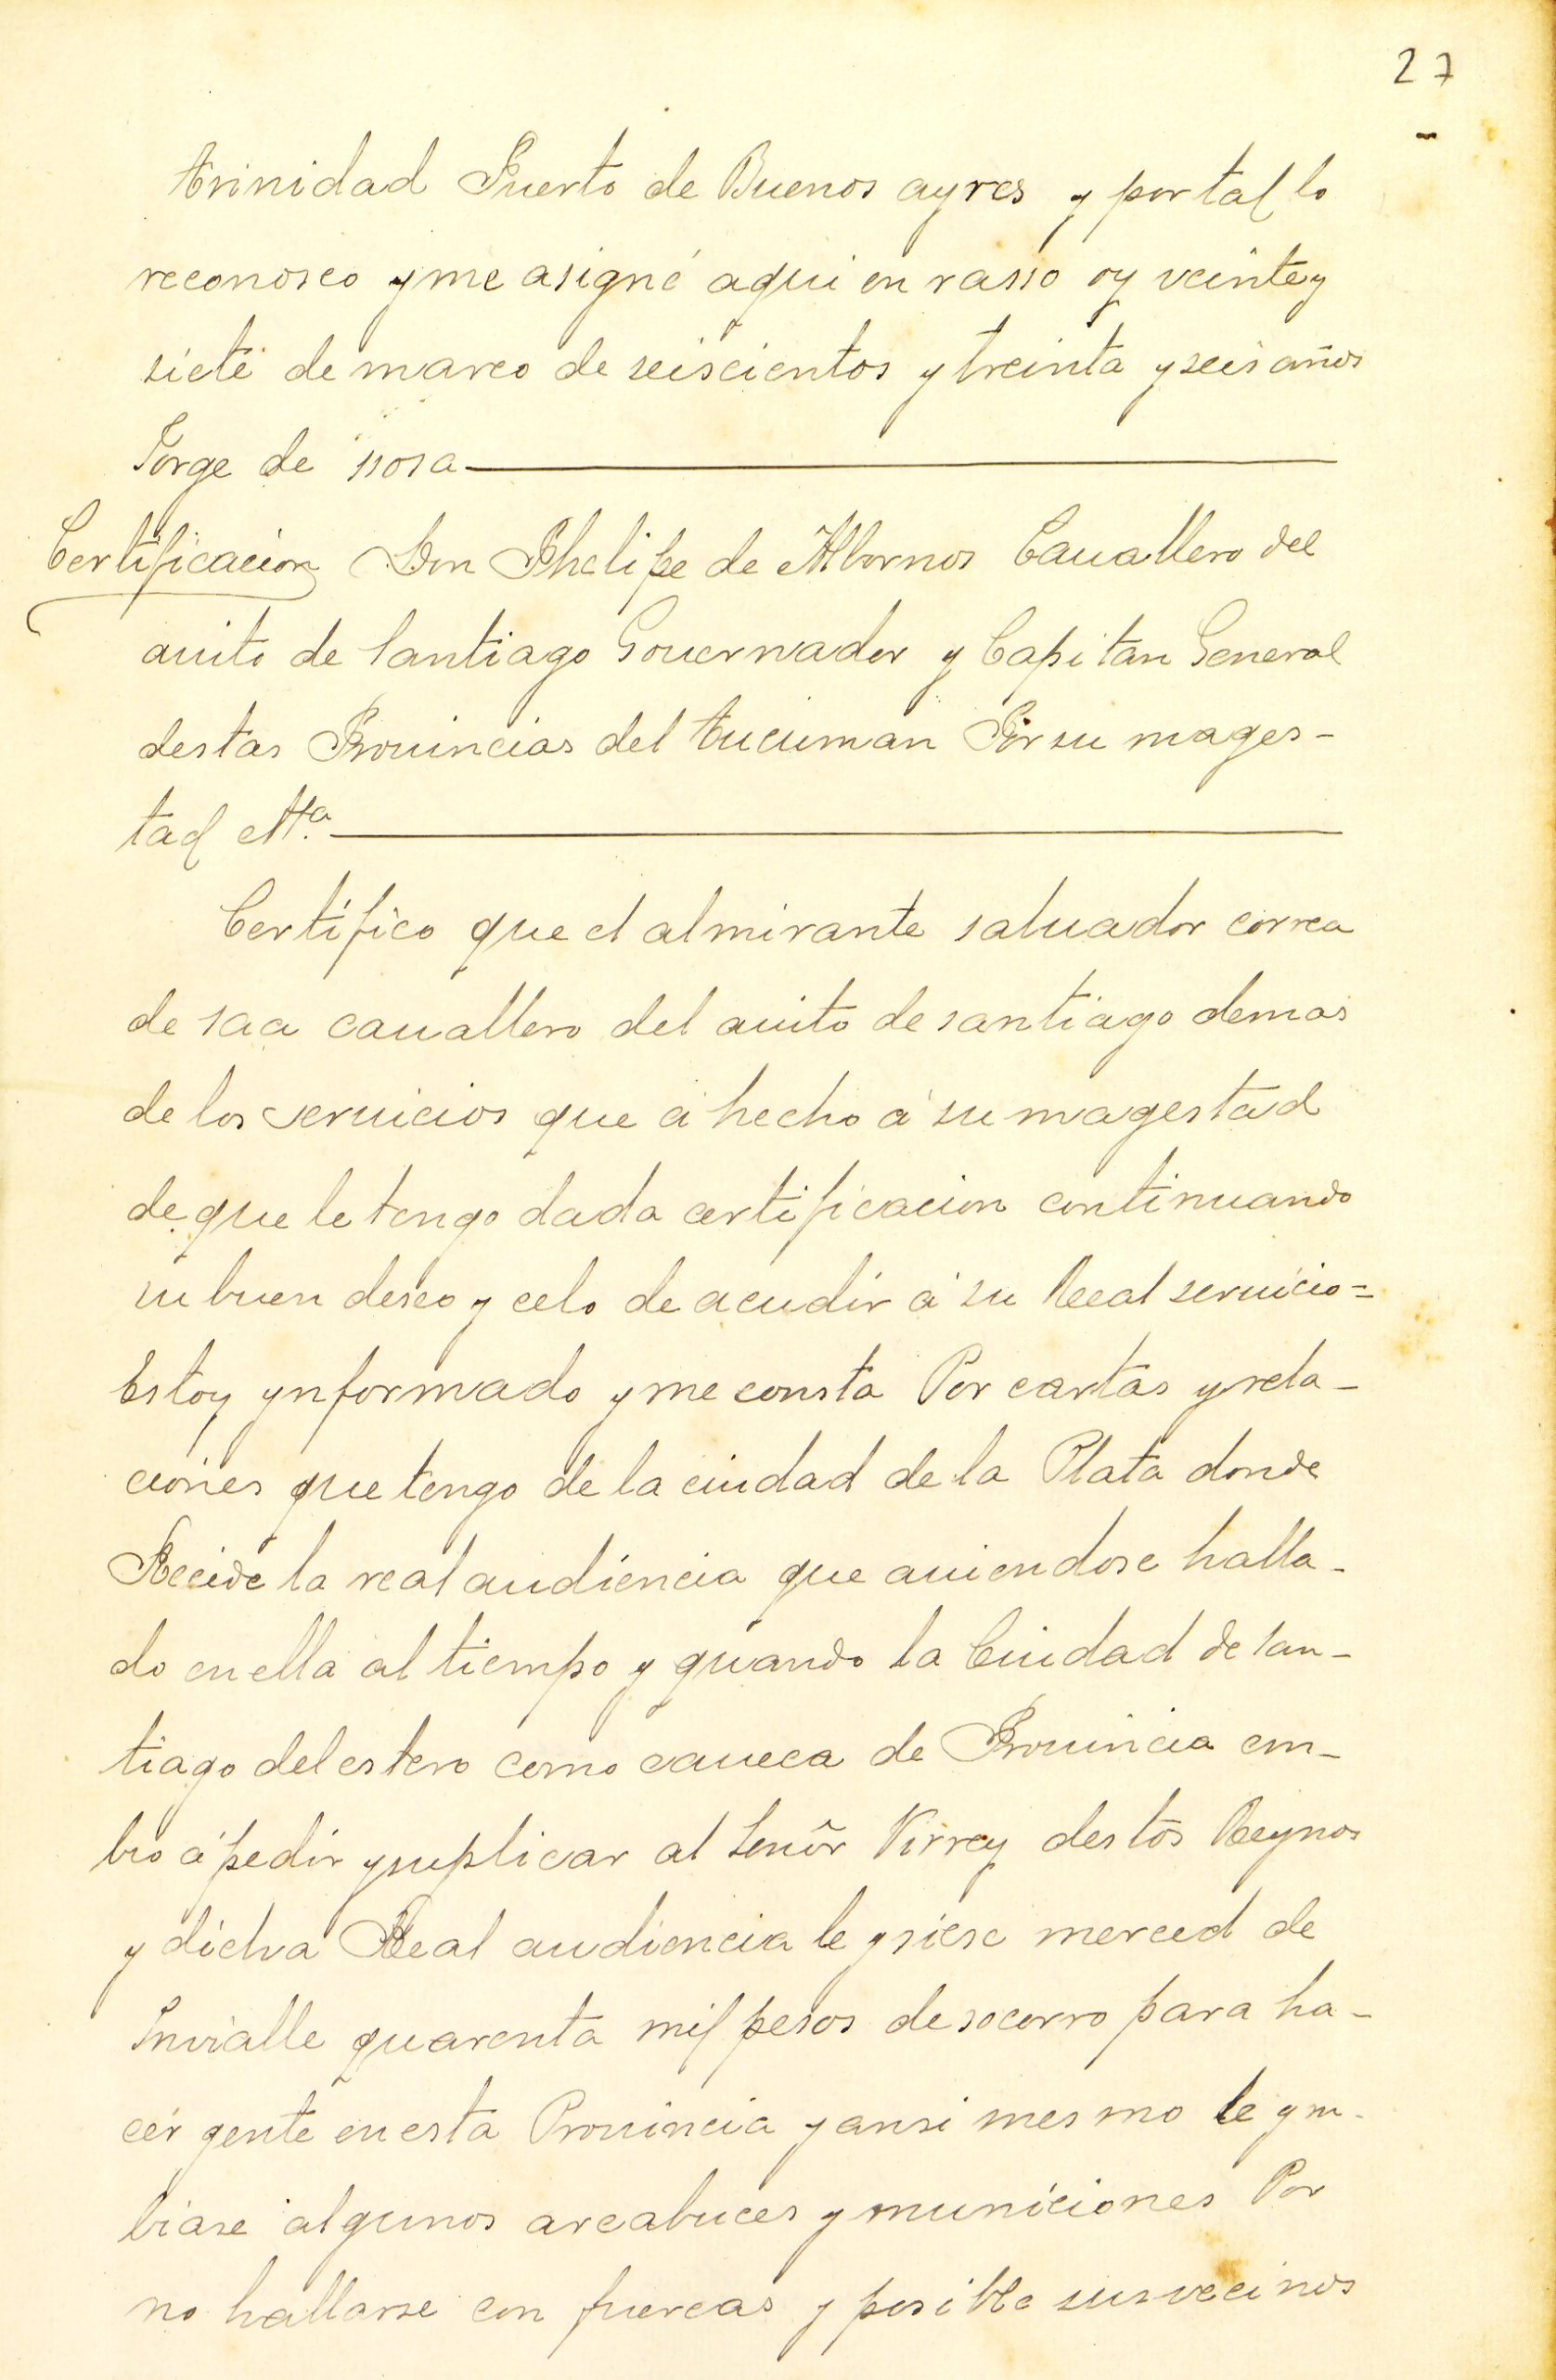 27
trinidad Puerto de Buenos ayres y por tal lo
reconosco y me asigné aqui en rasso oy veinte y
siete de março de seiscientos y treinta y seis años
Jorge de sosa
Certificacion Don Phelipe de Albornos Cauallero del
auito de Santiago Gouernador y Capitan General
destas Prouincias del tucuman Por su mages-
tad etta.
Certifico que el almirante saluador correa
de saa cauallero del auito de santiago demas
de los seruicios que á hecho á su magestad
de que le tengo dada certificacion continuando
su buen deseo y celo de acudir á su Real seruicio=
Estoy ynformado y me consta Por cartas y rela-
ciones que tengo de la ciudad de la Plata donde
Recide la real audiencia que auiendose halla-
do en ella al tiempo y quando la Ciudad de san-
tiago del estero como caueca de Prouincia em-
bio á pedir y suplicar al Señor Virrey destos Reynos
y dicha Real audiencia le ysiese merced de
Invialle quarenta mil pesos de socorro para ha-
cer gente en esta Prouincia y ansi mesmo le ym-
biase algunos arcabuces y municiones Por
no hallarse con fuercas y posible sus vecinos